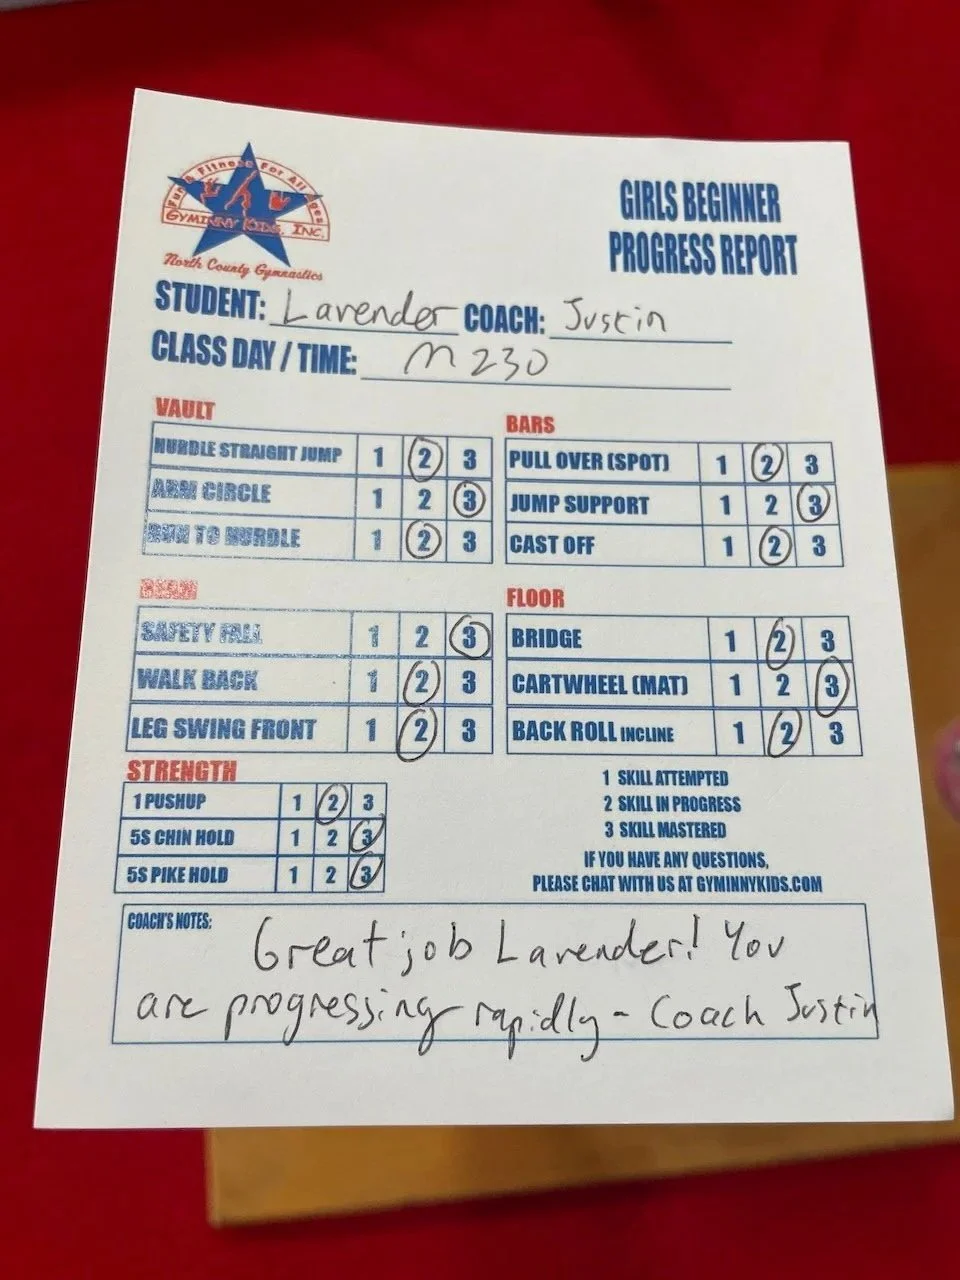 Fun & Fitness For All Ages
GYMINNY KIDS, INC.
North County Gymnastics
GIRLS BEGINNER
PROGRESS REPORT
STUDENT: Lavender COACH: Justin
CLASS DAY / TIME: M 230
VAULT
HURDLE STRAIGHT JUMP 1 2 3
ARM CIRCLE 1 2 3
RUN TO HURDLE 1 2 3
BARS
PULL OVER (SPOT) 1 2 3
JUMP SUPPORT 1 2 3
CAST OFF 1 2 3
BEAM
SAFETY FALL 1 2 3
WALK BACK 1 2 3
LEG SWING FRONT 1 2 3
FLOOR
BRIDGE 1 2 3
CARTWHEEL (MAT) 1 2 3
BACK ROLL INCLINE 1 2 3
STRENGTH
1 PUSHUP 1 2 3
5S CHIN HOLD 1 2 3
5S PIKE HOLD 1 2 3
1 SKILL ATTEMPTED
2 SKILL IN PROGRESS
3 SKILL MASTERED
IF YOU HAVE ANY QUESTIONS,
PLEASE CHAT WITH US AT GYMINNYKIDS.COM
COACH'S NOTES:
Great job Lavender! You
are progressing rapidly - Coach Justin